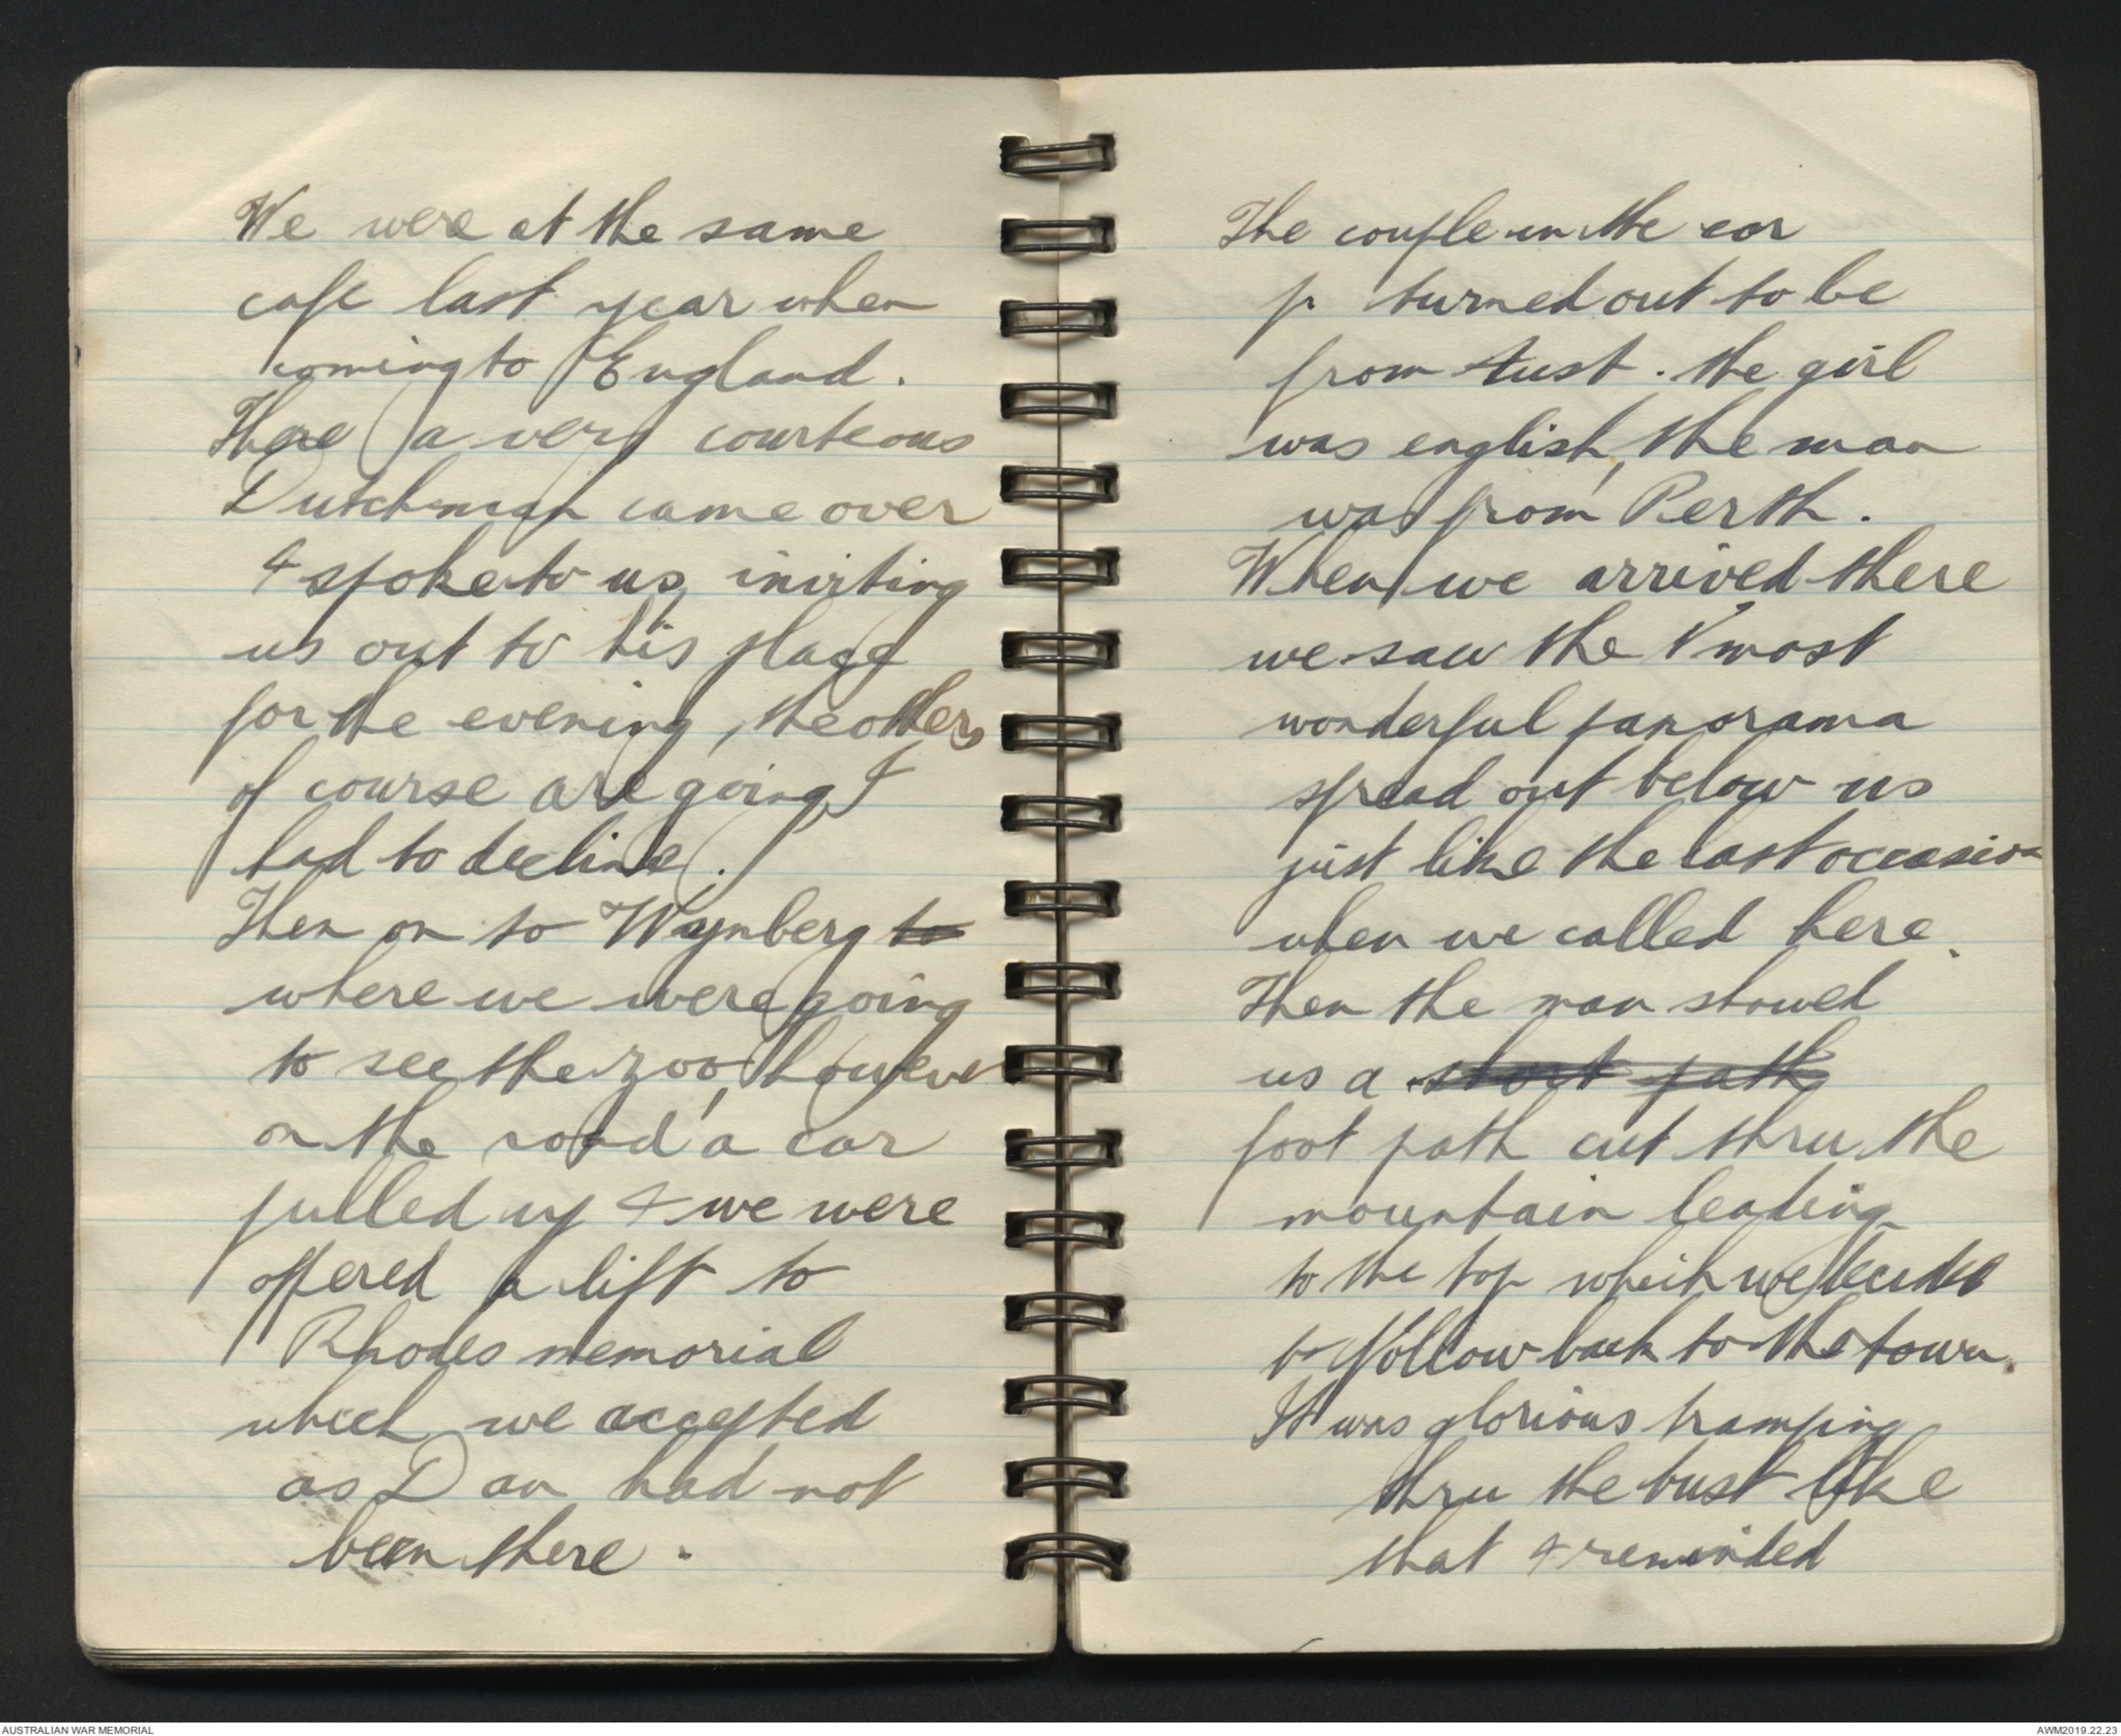 We were at the same
cafe last year when
coming to England.
There a very courteous
Dutchman came over
& spoke to us, inviting
us out to his place
for the evening, the others
of course are going, I
had to decline.
Then on to Waynberg to
where we were going
to see the zoo, however
on the road a car
pulled up & we were
offered a lift to
Rhodes memorial
which we accepted
as Dan had not
been there.
The couple in the car
p turned out to be
from Aust. the girl
was english, the man
was from Perth.
When we arrived there
we saw the most
wonderful panorama
spread out below us
just like the last occasion
when we called here.
Then the man showed
us a short path
foot path cut thru the
mountain leading
to the top which we decided
to follow back to the town.
It was glorious tramping
thru the bush like
that & reminded
AUSTRALIAN WAR MEMORIAL
AWM2019.22.23